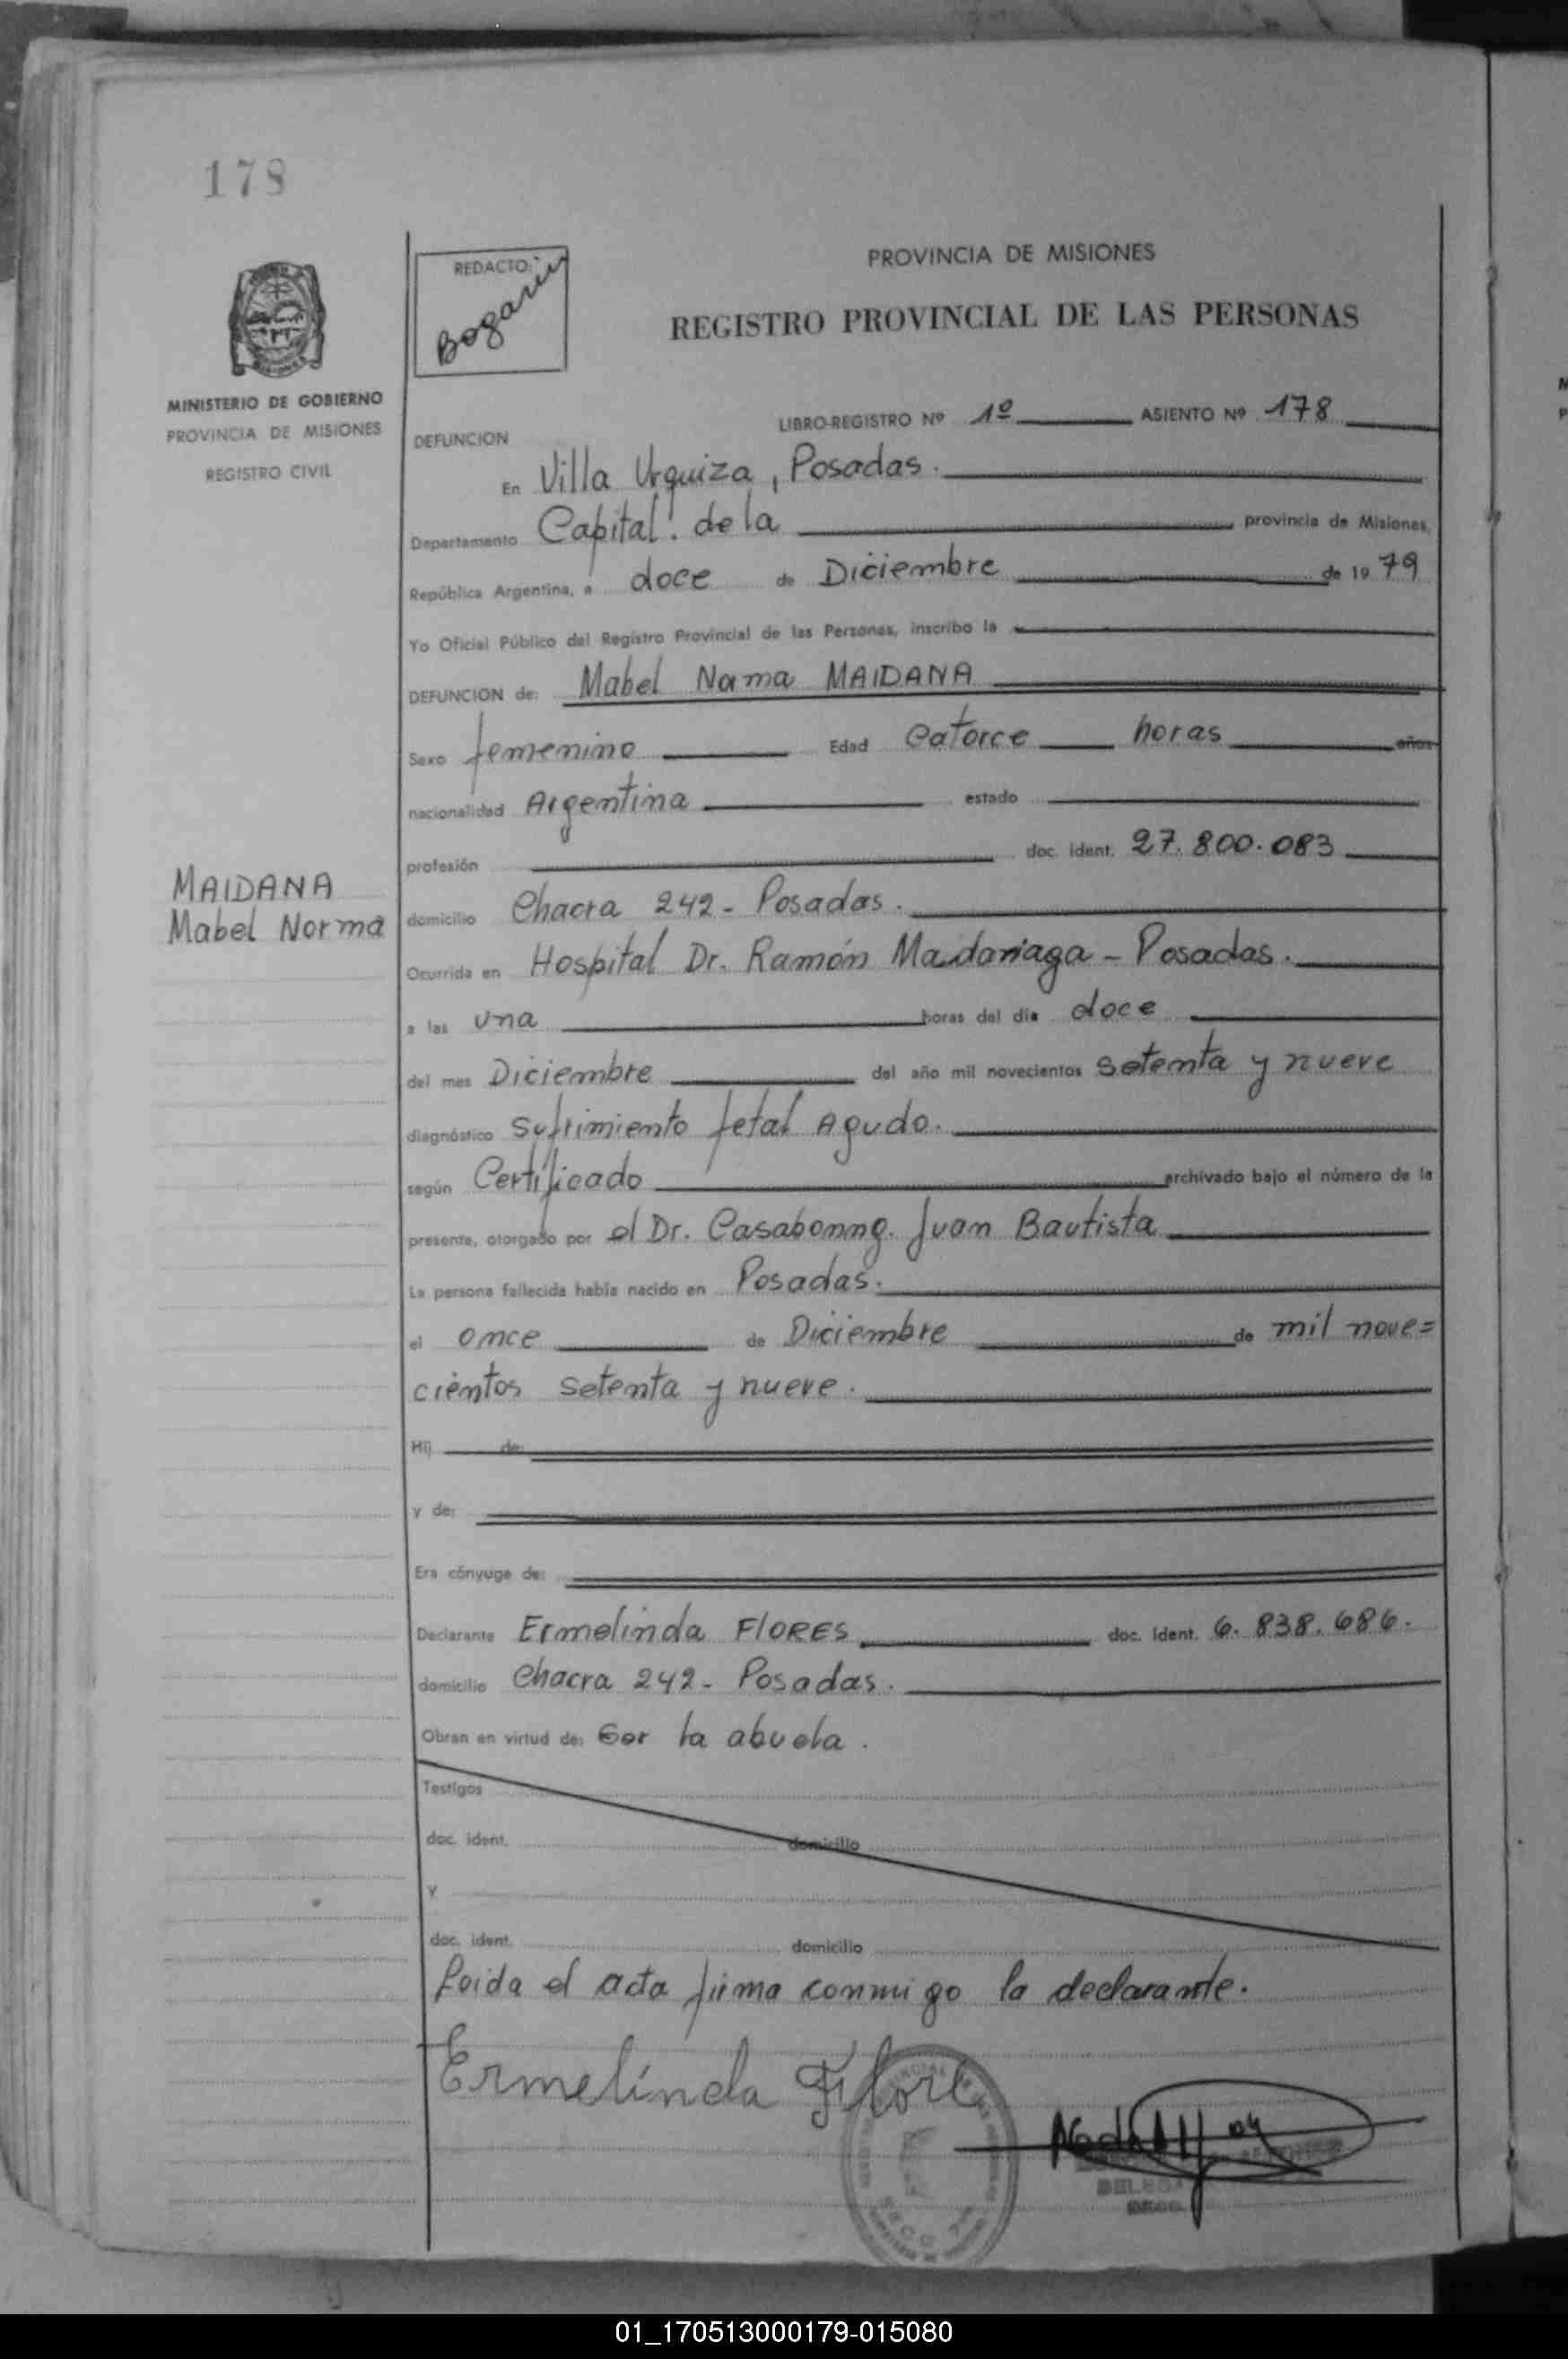 178
PROVINCIA DE MISIONES
REDACTO:
Bogarin
REGISTRO PROVINCIAL DE LAS PERSONAS
MINISTERIO DE GOBIERNO
PROVINCIA DE MISIONES
REGISTRO CIVIL
LIBRO-REGISTRO Nº 1º ASIENTO Nº 178
DEFUNCION
En Villa Urquiza, Posadas.
Departamento Capital. de la provincia de Misiones,
República Argentina, a doce de Diciembre de 19 79
Yo Oficial Público del Registro Provincial de las Personas, inscribo la
DEFUNCION de: Mabel Norma MAIDANA
Sexo femenino Edad catorce horas años
nacionalidad Argentina estado
profesión doc. ident. 27.800.083
MAIDANA
Mabel Norma
domicilio Chacra 242 - Posadas.
Ocurrida en Hospital Dr. Ramón Madariaga - Posadas.
a las una horas del día doce
del mes Diciembre del año mil novecientos setenta y nueve
diagnóstico Sufrimiento fetal Agudo.
según Certificado archivado bajo el número de la
presente, otorgado por el Dr. Juan Bautista
La persona fallecida había nacido en Posadas.
el once de Diciembre de mil nove=
cientos setenta y nueve.
Hij de:
y de:
Era cónyuge de:
Declarante Ermelinda FLORES doc. ident. 6.838.686.
domicilio Chacra 242 - Posadas.
Obran en virtud de: Ser la abuela.
Testigos
doc. ident. domicilio
y
doc. ident. domicilio
Leida el acta firma conmigo la declarante.
Ermelinda Flore
01_170513000179-015080